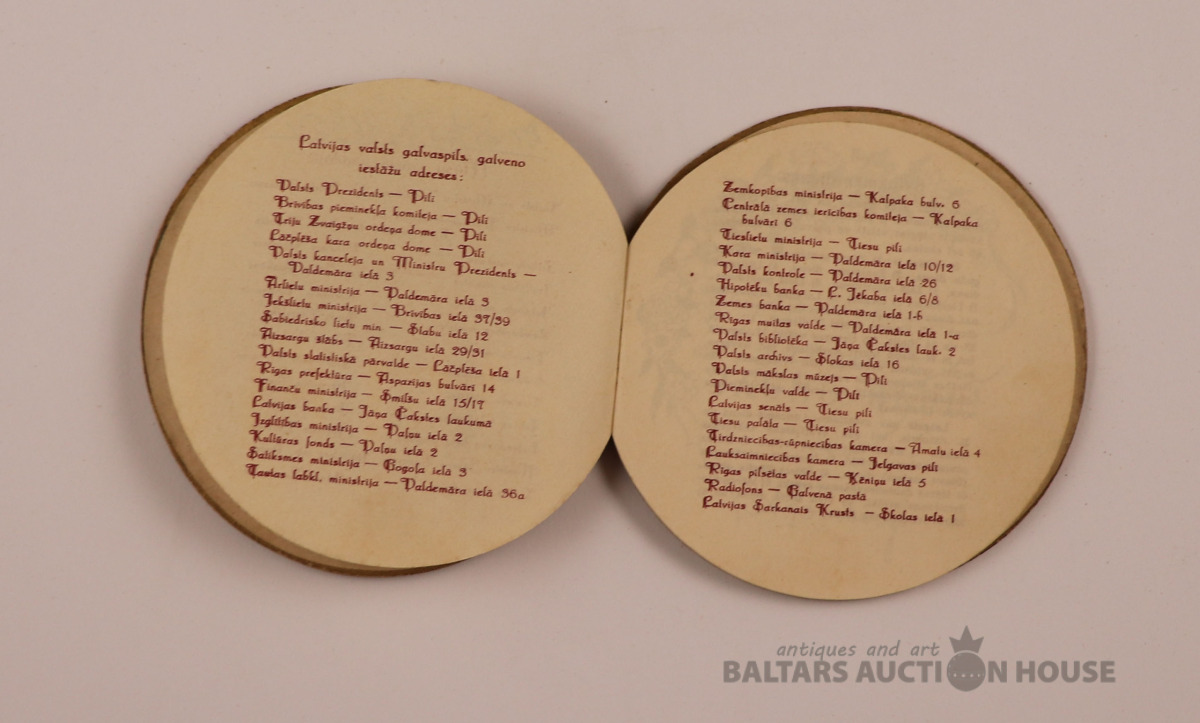 Latvijas valsts galvaspils. galveno
iestāžu adreses:
Valsts Prezidents — Pilī
Brīvības pieminekļa komiteja — Pilī
Triju Zvaigžņu ordeņa dome — Pilī
Lāčplēša kara ordeņa dome — Pilī
Valsts kanceleja un Ministru Prezidents —
Valdemāra ielā 3
Ārlietu ministrija — Valdemāra ielā 3
Iekšlietu ministrija — Brīvības ielā 37/39
Sabiedrisko lietu min — Stabu ielā 12
Aizsargu štābs — Aizsargu ielā 29/31
Valsts statistiskā pārvalde — Lāčplēša ielā 1
Rīgas prefektūra — Aspazijas bulvāri 14
Finanču ministrija — Smilšu ielā 15/17
Latvijas banka — Jāņa Čakstes laukumā
Izglītības ministrija — Vaļņu ielā 2
Kultūras fonds — Vaļņu ielā 2
Satiksmes ministrija — Gogoļa ielā 3
Tautas labkl. ministrija — Valdemāra ielā 36a
Zemkopības ministrija — Kalpaka bulv. 6
Centrālā zemes ierīcības komiteja — Kalpaka
bulvāri 6
Tieslietu ministrija — Tiesu pilī
Kara ministrija — Valdemāra ielā 10/12
Valsts kontrole — Valdemāra ielā 26
Hipotēku banka — L. Jēkaba ielā 6/8
Zemes banka — Valdemāra ielā 1-b
Rīgas muitas valde — Valdemāra ielā 1-a
Valsts bibliotēka — Jāņa Čakstes lauk. 2
Valsts archivs — Slokas ielā 16
Valsts mākslas mūzejs — Pilī
Pieminekļu valde — Pilī
Latvijas senāts — Tiesu pilī
Tiesu palāta — Tiesu pilī
Tirdzniecības-rūpniecības kamera — Amatu ielā 4
Lauksaimniecības kamera — Jelgavas pilī
Rīgas pilsētas valde — Ķēniņu ielā 5
Radiofons — Galvenā pastā
Latvijas Sarkanais Krusts — Skolas ielā 1
antiques and art
BALTARS AUCTION HOUSE